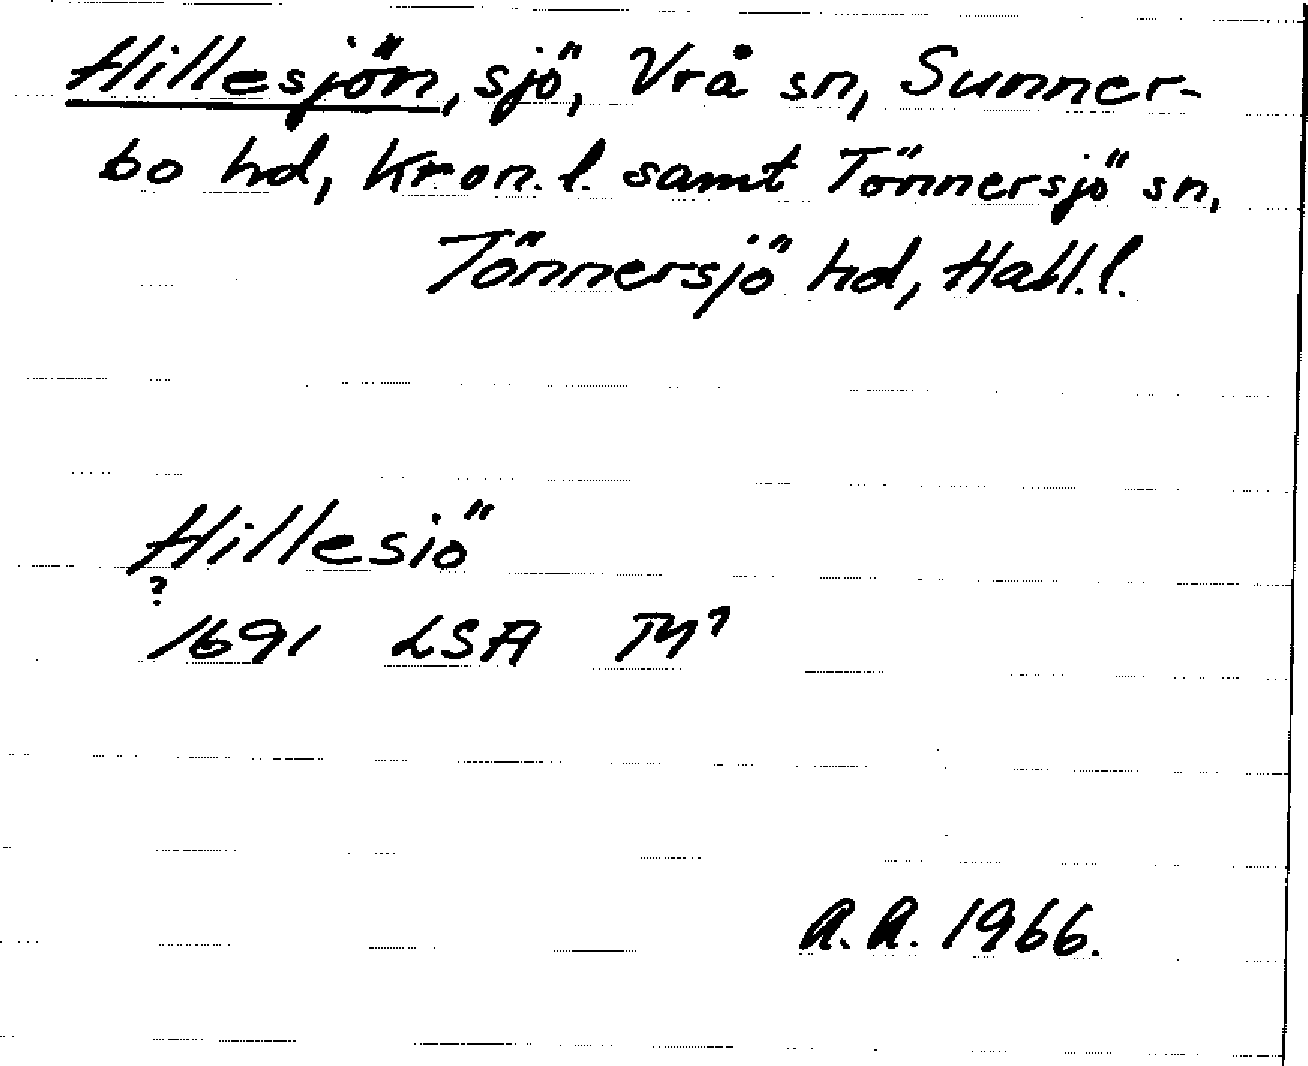 Hillesjön, sjö, Vrå sn, Sunner-
bo hd, Kron. l. samt Tönnersjö sn,
Tönnersjö hd, Hall. l.
Hillesiö
?
1691 LSA
A.A. 1966.